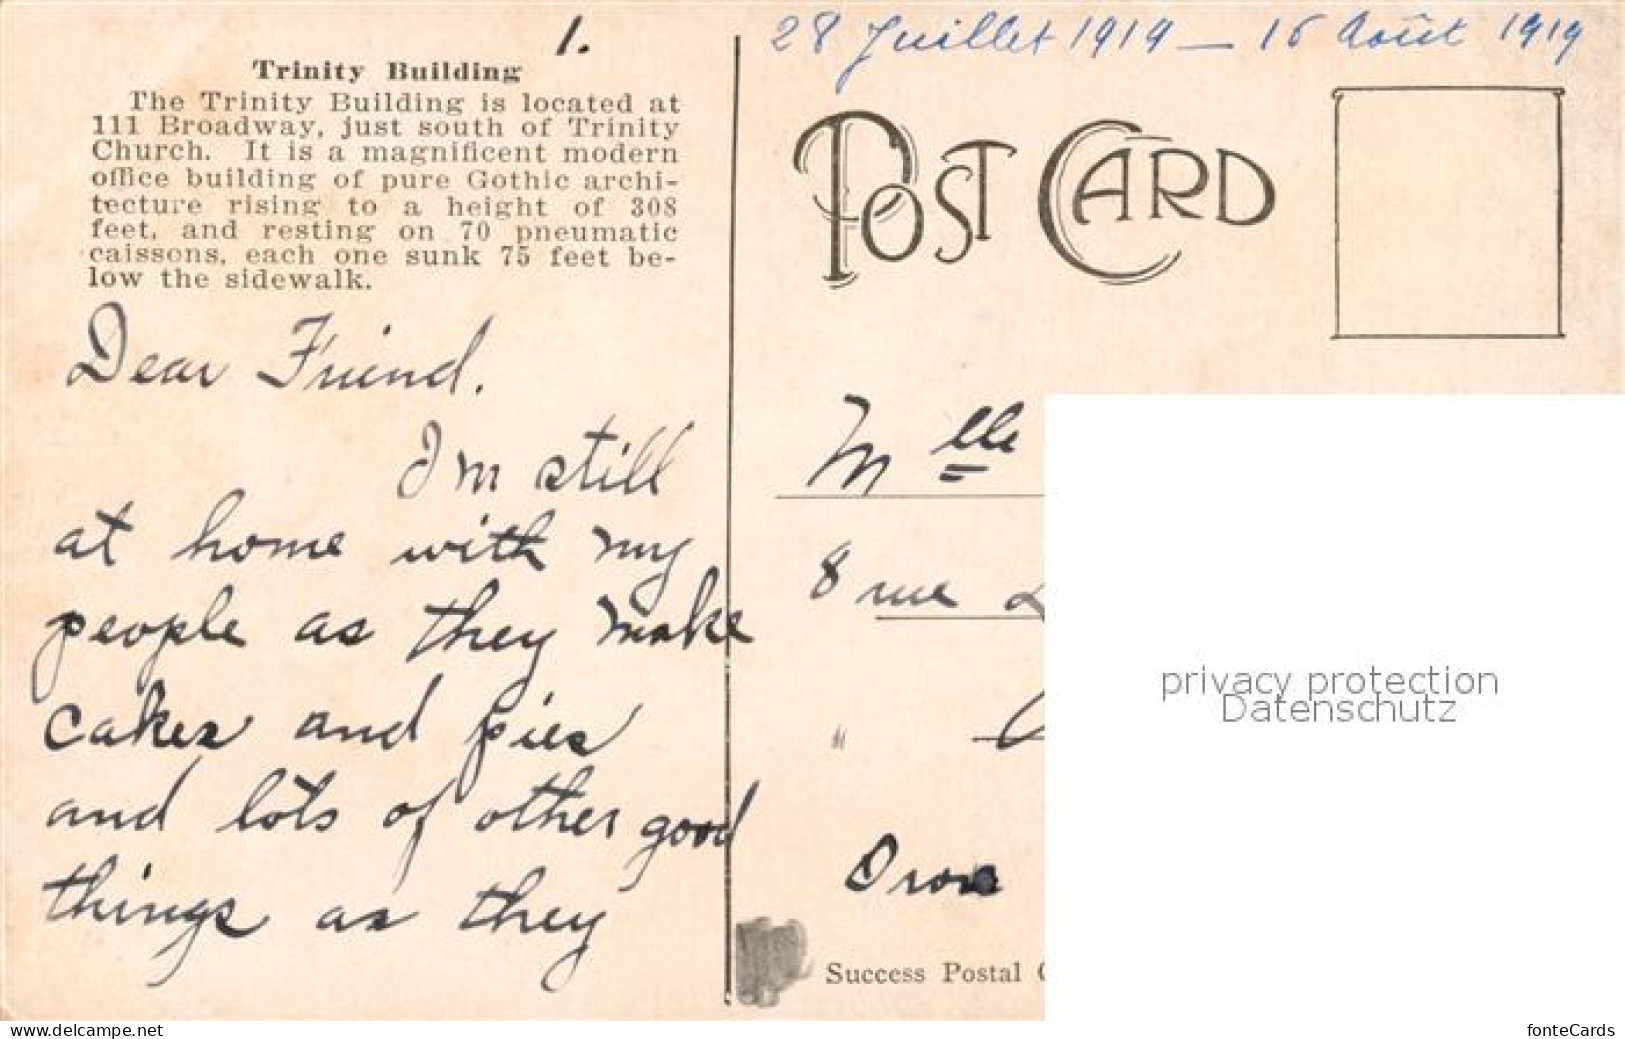 1.
Trinity Building
The Trinity Building is located at
111 Broadway, just south of Trinity
Church. It is a magnificent modern
office building of pure Gothic archi-
tecture rising to a height of 308
feet, and resting on 70 pneumatic
caissons, each one sunk 75 feet be-
low the sidewalk.
Dear Friend.
I'm still
at home with my
people as they make
cakes and pies
and lots of other good
things as they
28 Juillet 1919 — 16 Août 1919
POST CARD
Mlle
8 rue
privacy protection
Datenschutz
Success Postal
www.delcampe.net
fonteCards